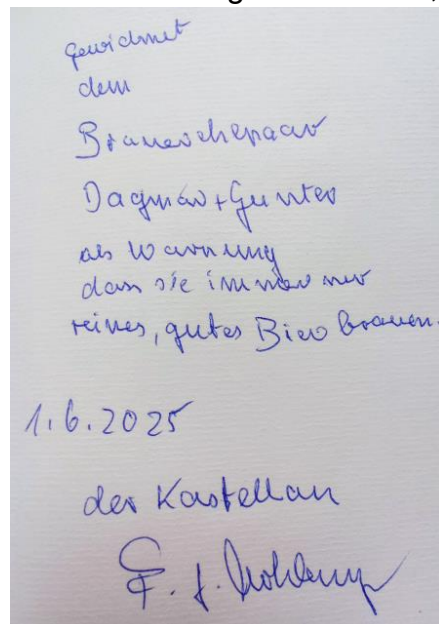 gewidmet
dem
Brauerehepaar
Dagmar + Gunter
als Warnung
dass sie immer nur
reines, gutes Bier brauen.
1.6.2025
der Kastellan
F. J.